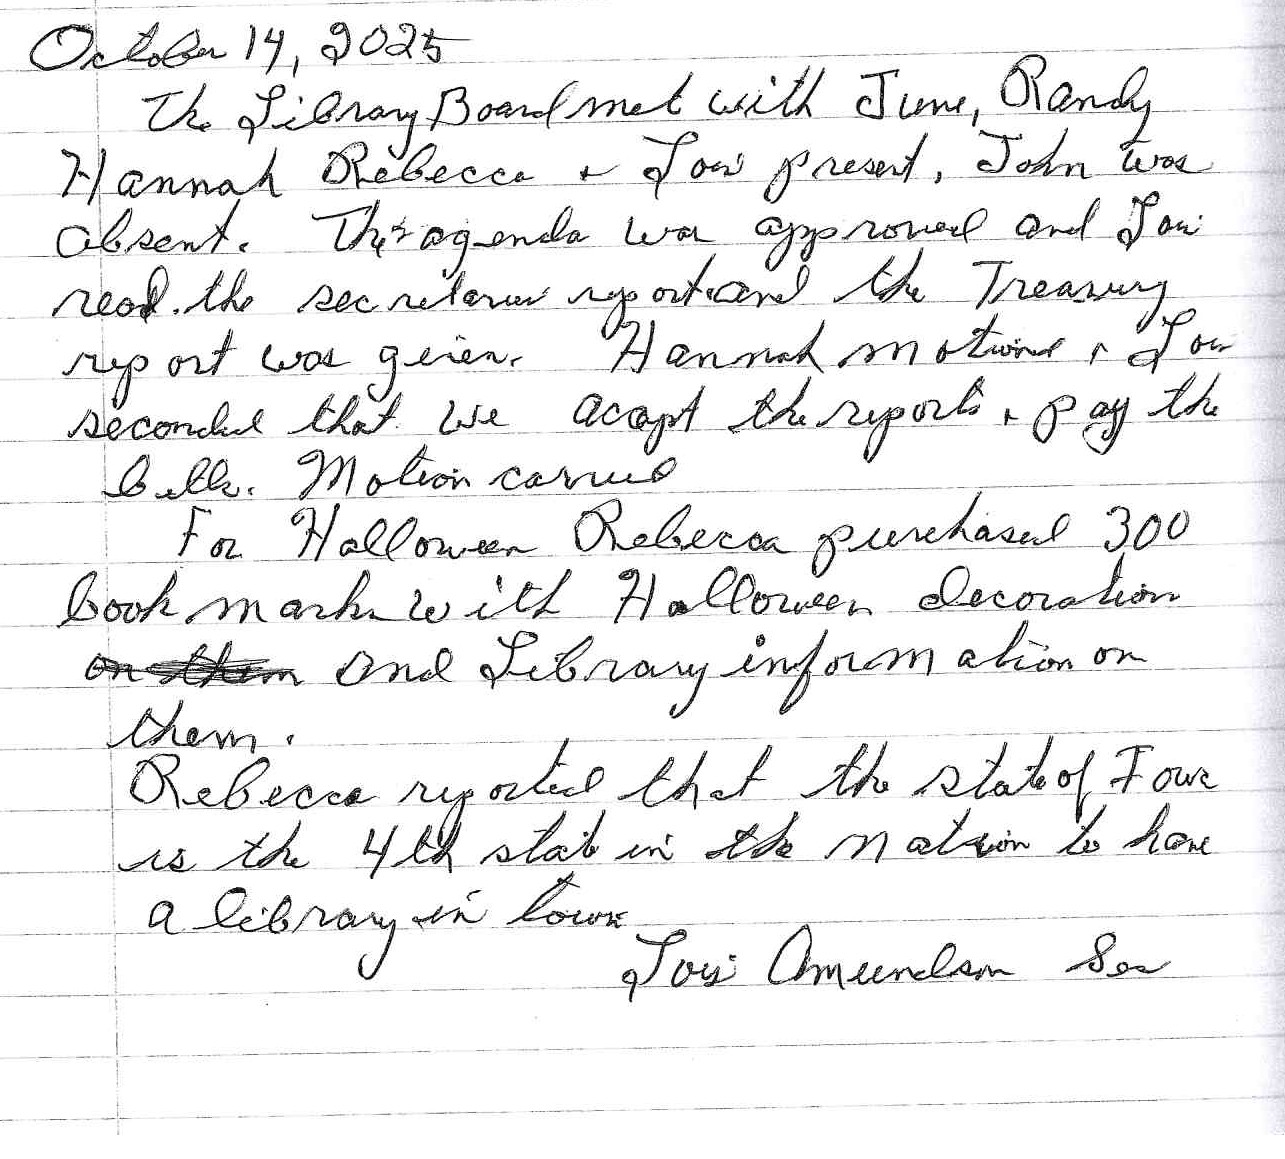 October 14, 2025
The Library Board met with June, Randy
Hannah Rebecca & Lois present, John was
absent. The agenda was approved and Lois
read the secretaries report and the Treasury
report was given. Hannah motioned & Lois
seconded that we acept the reports & pay the
bills. Motion carried
For Halloween Rebecca purchased 300
book marks with Halloween decoration
and Library information on
them.
Rebecca reported that the state of Iowa
is the 4th state in the nation to have
a library in town
Lois Amundson Sec